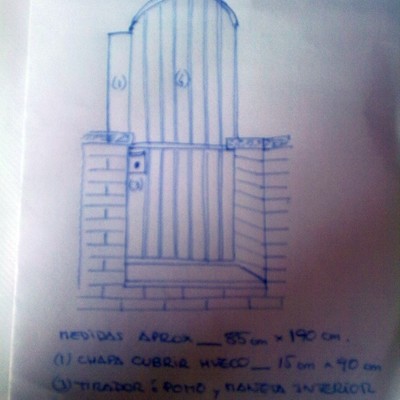 (1)
(2)
MEDIDAS APROX __ 85 cm x 190 cm.
(1) CHAPA CUBRIR HUECO __ 15 cm x 90 cm
TIRADOR ó POMO y MANETA INTERIOR